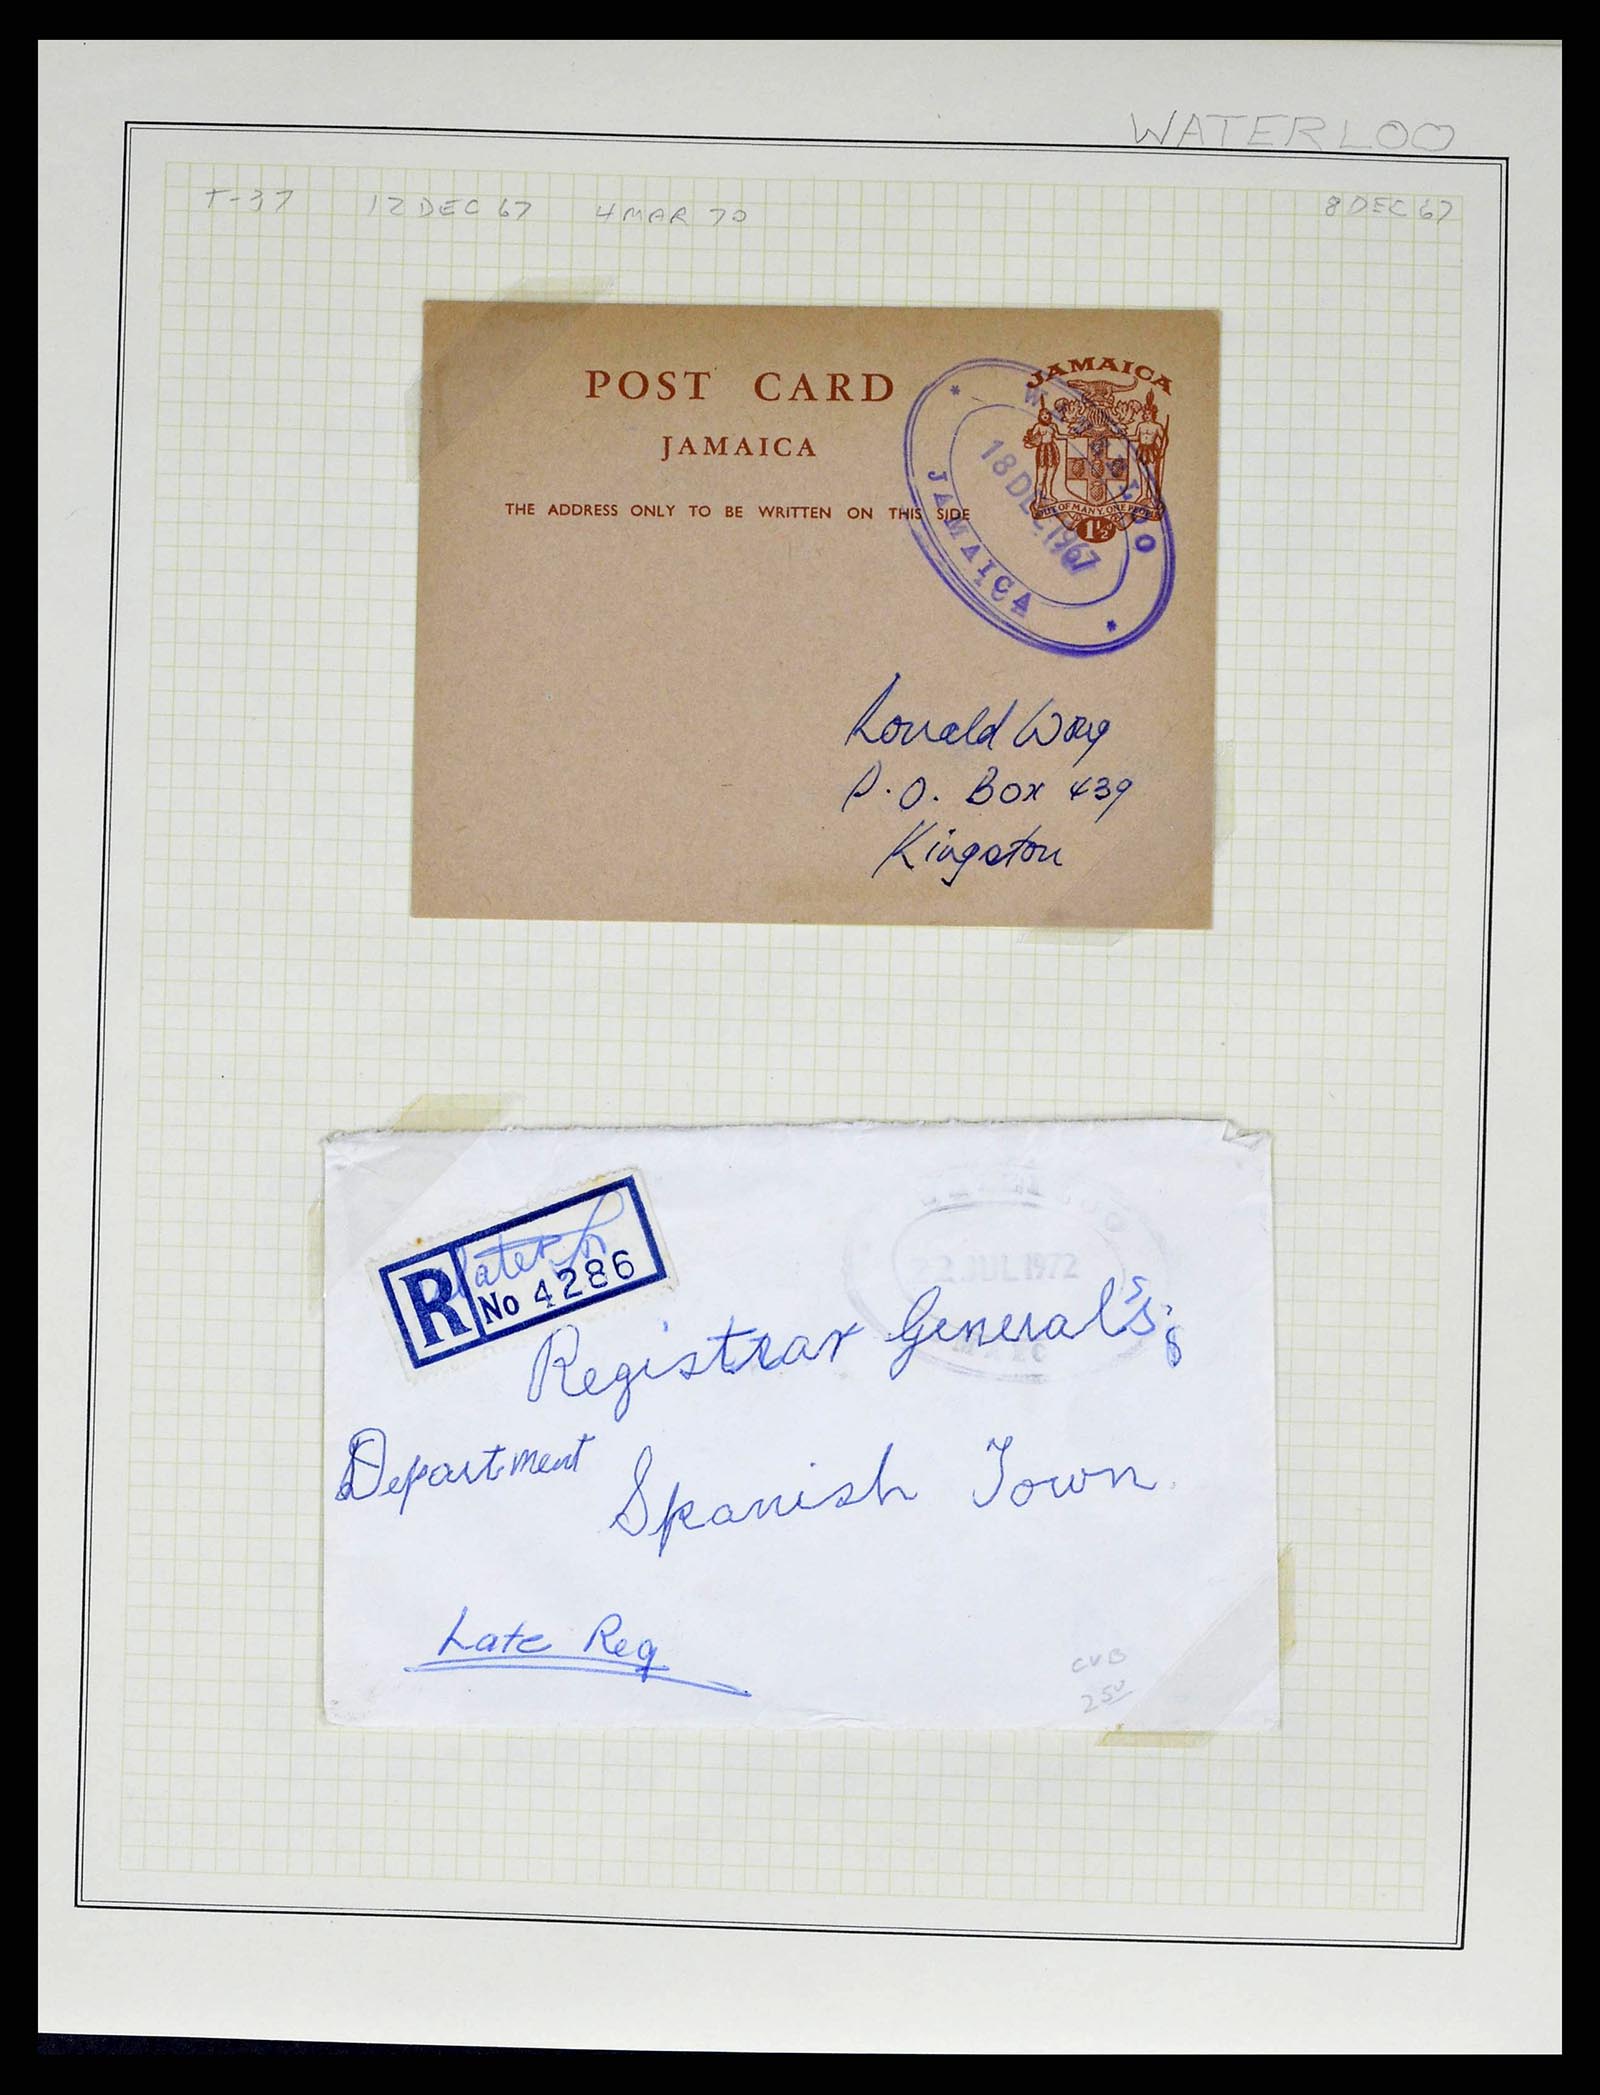 WATERLOO
T-37 12 DEC 67 4 MAR 70 8 DEC 67
POST CARD
JAMAICA
THE ADDRESS ONLY TO BE WRITTEN ON THIS SIDE
JAMAICA
OUT OF MANY, ONE PEOPLE
1½d
WATERLOO
18 DEC 1967
JAMAICA
Ronald Wong
P.O. Box 439
Kingston
R
No 4286
JUL 1972
Registrar General's
Department Spanish Town
Late Reg
CVB
250